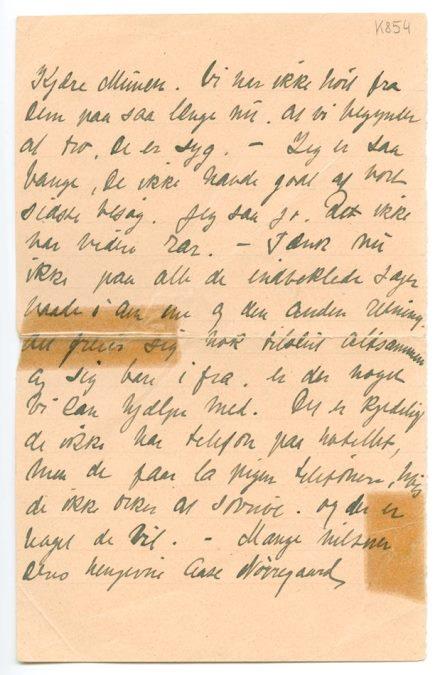 K854
Kjære Munch. Vi har ikke hört fra
Dem paa saa længe nu. at vi begynder
at tro, De er syg. – Jeg er saa
bange, De ikke havde godt af vort
sidste besøg. Jeg saa jo. Det ikke
var videre rar. – Tænk nu
ikke paa alle de indviklede sager
baade i den ene og den anden retning.
det greier sig nok tilslut altsammen
og sig bare i fra, er der noget
vi kan hjælpe med. Det er kjedelig
de ikke har telefon paa hotellet,
men de faar la pigen telefonere, hvis
de ikke orker at skrive. og der er
noget de vil. – Mange hilsner
Deres hengivne Aase Nørregaard